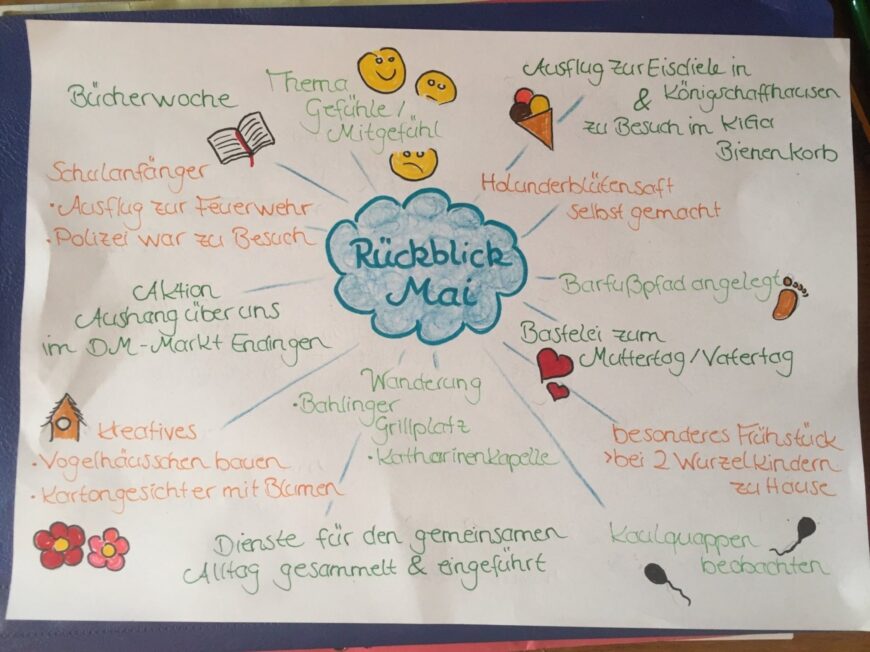 Rückblick
Mai
Bücherwoche
Thema
Gefühle/
Mitgefühl
Ausflug zur Eisdiele in
& Königschaffhausen
zu Besuch im KiGa
Bienenkorb
Schulanfänger
• Ausflug zur Feuerwehr
• Polizei war zu Besuch
Holunderblütensaft
selbst gemacht
Aktion
Aushang über uns
im DM-Markt Endingen
Barfußpfad angelegt
Bastelei zum
Muttertag/Vatertag
Wanderung
• Bahlinger
Grillplatz
• Katharinenkapelle
kreatives
• Vogelhäusschen bauen
• Kartongesichter mit Blumen
besonderes Frühstück
>bei 2 Wurzelkindern
zu Hause
Dienste für den gemeinsamen
Alltag gesammelt & eingeführt
Kaulquappen
beobachten